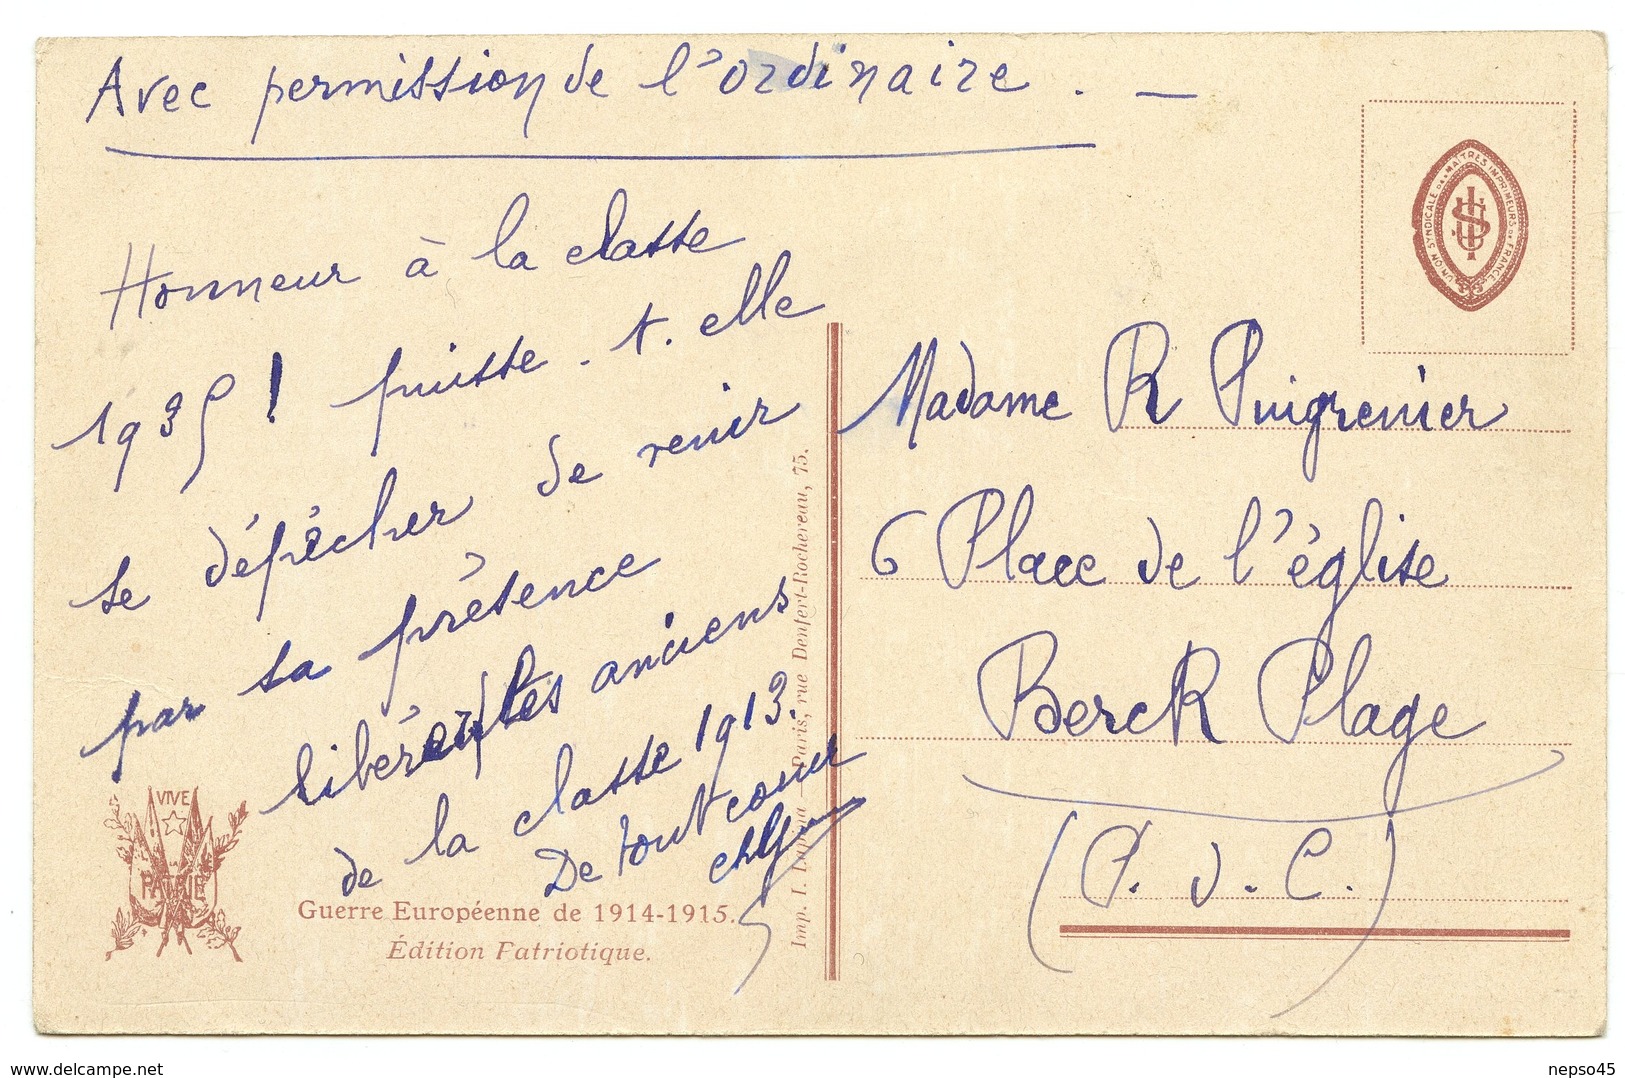 Avec permission de l'ordinaire. —
Honneur à la classe
1935! puisse-t-elle
se dépêcher de venir
par sa présence
libérer les anciens
de la classe 1913.
De tout coeur
VIVE
LA
PATRIE
Guerre Européenne de 1914-1915.
Édition Patriotique.
Paris, rue Denfert-Rochereau, 75.
UNION SYNDICALE DES MAÎTRES IMPRIMEURS DE FRANCE
Madame R Puigrenier
6 Place de l'église
Berck Plage
(P. d. C.)
delcampe.net
nepso45